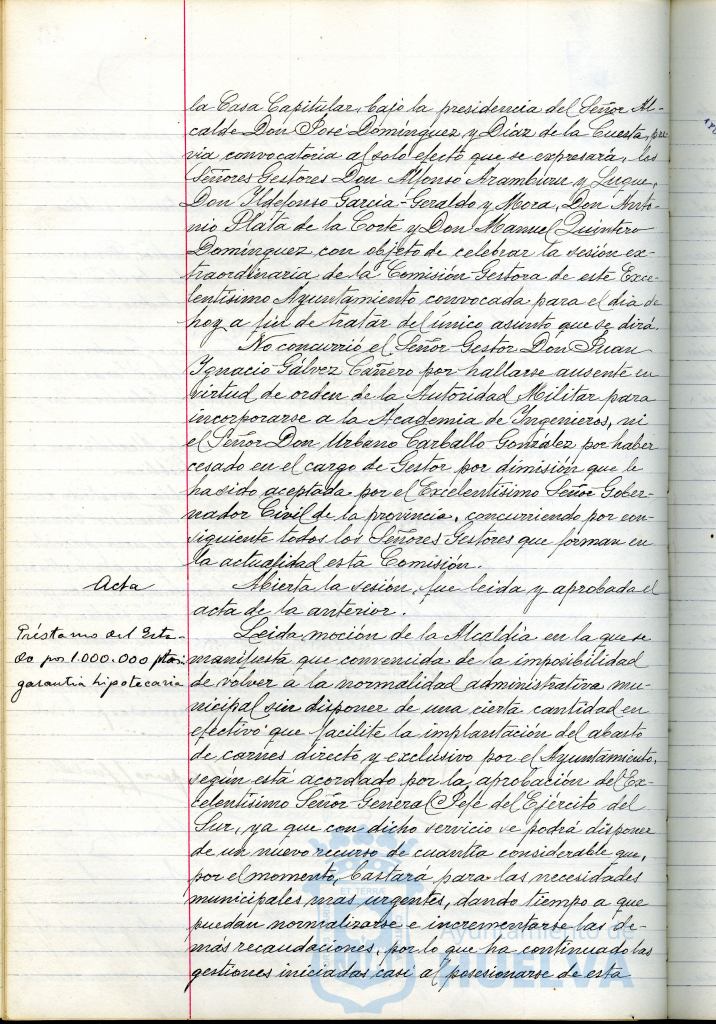 la Casa Capitular, bajo la presidencia del Señor Al-
calde Don José Domínguez y Díaz de la Cuesta, pre-
via convocatoria al solo efecto que se expresará, los
Señores Gestores Don Alfonso Aramburu y Luque,
Don Ildefonso García-Geraldo y Mora, Don Anto-
nio Plata de la Corte y Don Manuel Quintero
Domínguez con objeto de celebrar la sesión ex-
traordinaria de la Comisión Gestora de este Exce-
lentísimo Ayuntamiento convocada para el día de
hoy a fin de tratar del único asunto que se dirá.
No concurrió el Señor Gestor Don Juan
Ignacio Gálvez Cañero por hallarse ausente en
virtud de orden de la Autoridad Militar para
incorporarse a la Academia de Ingenieros, ni
el Señor Don Urbano Carballo González por haber
cesado en el cargo de Gestor por dimisión que le
ha sido aceptada por el Excelentísimo Señor Gober-
nador Civil de la provincia, concurriendo por con-
siguiente todos los Señores Gestores que forman en
la actualidad esta Comisión.
Acta
Abierta la sesión, fue leida y aprobada el
acta de la anterior.
Préstamo del Esta-
do por 1.000.000 ptas.
garantía hipotecaria
Leida moción de la Alcaldía en la que se
manifiesta que convencida de la imposibilidad
de volver a la normalidad administrativa mu-
nicipal sin disponer de una cierta cantidad en
efectivo que facilite la implantación del abasto
de carnes directo y exclusivo por el Ayuntamiento,
según está acordado por la aprobación del Ex-
celentísimo Señor General Jefe del Ejército del
Sur, ya que con dicho servicio se podrá disponer
de un nuevo recurso de cuantía considerable que,
por el momento, bastará para las necesidades
municipales mas urgentes, dando tiempo a que
puedan normalizarse e incrementarse las de-
más recaudaciones, por lo que ha continuado las
gestiones iniciadas casi al posesionarse de esta
ET TERRÆ
Ayuntamiento de
HUELVA